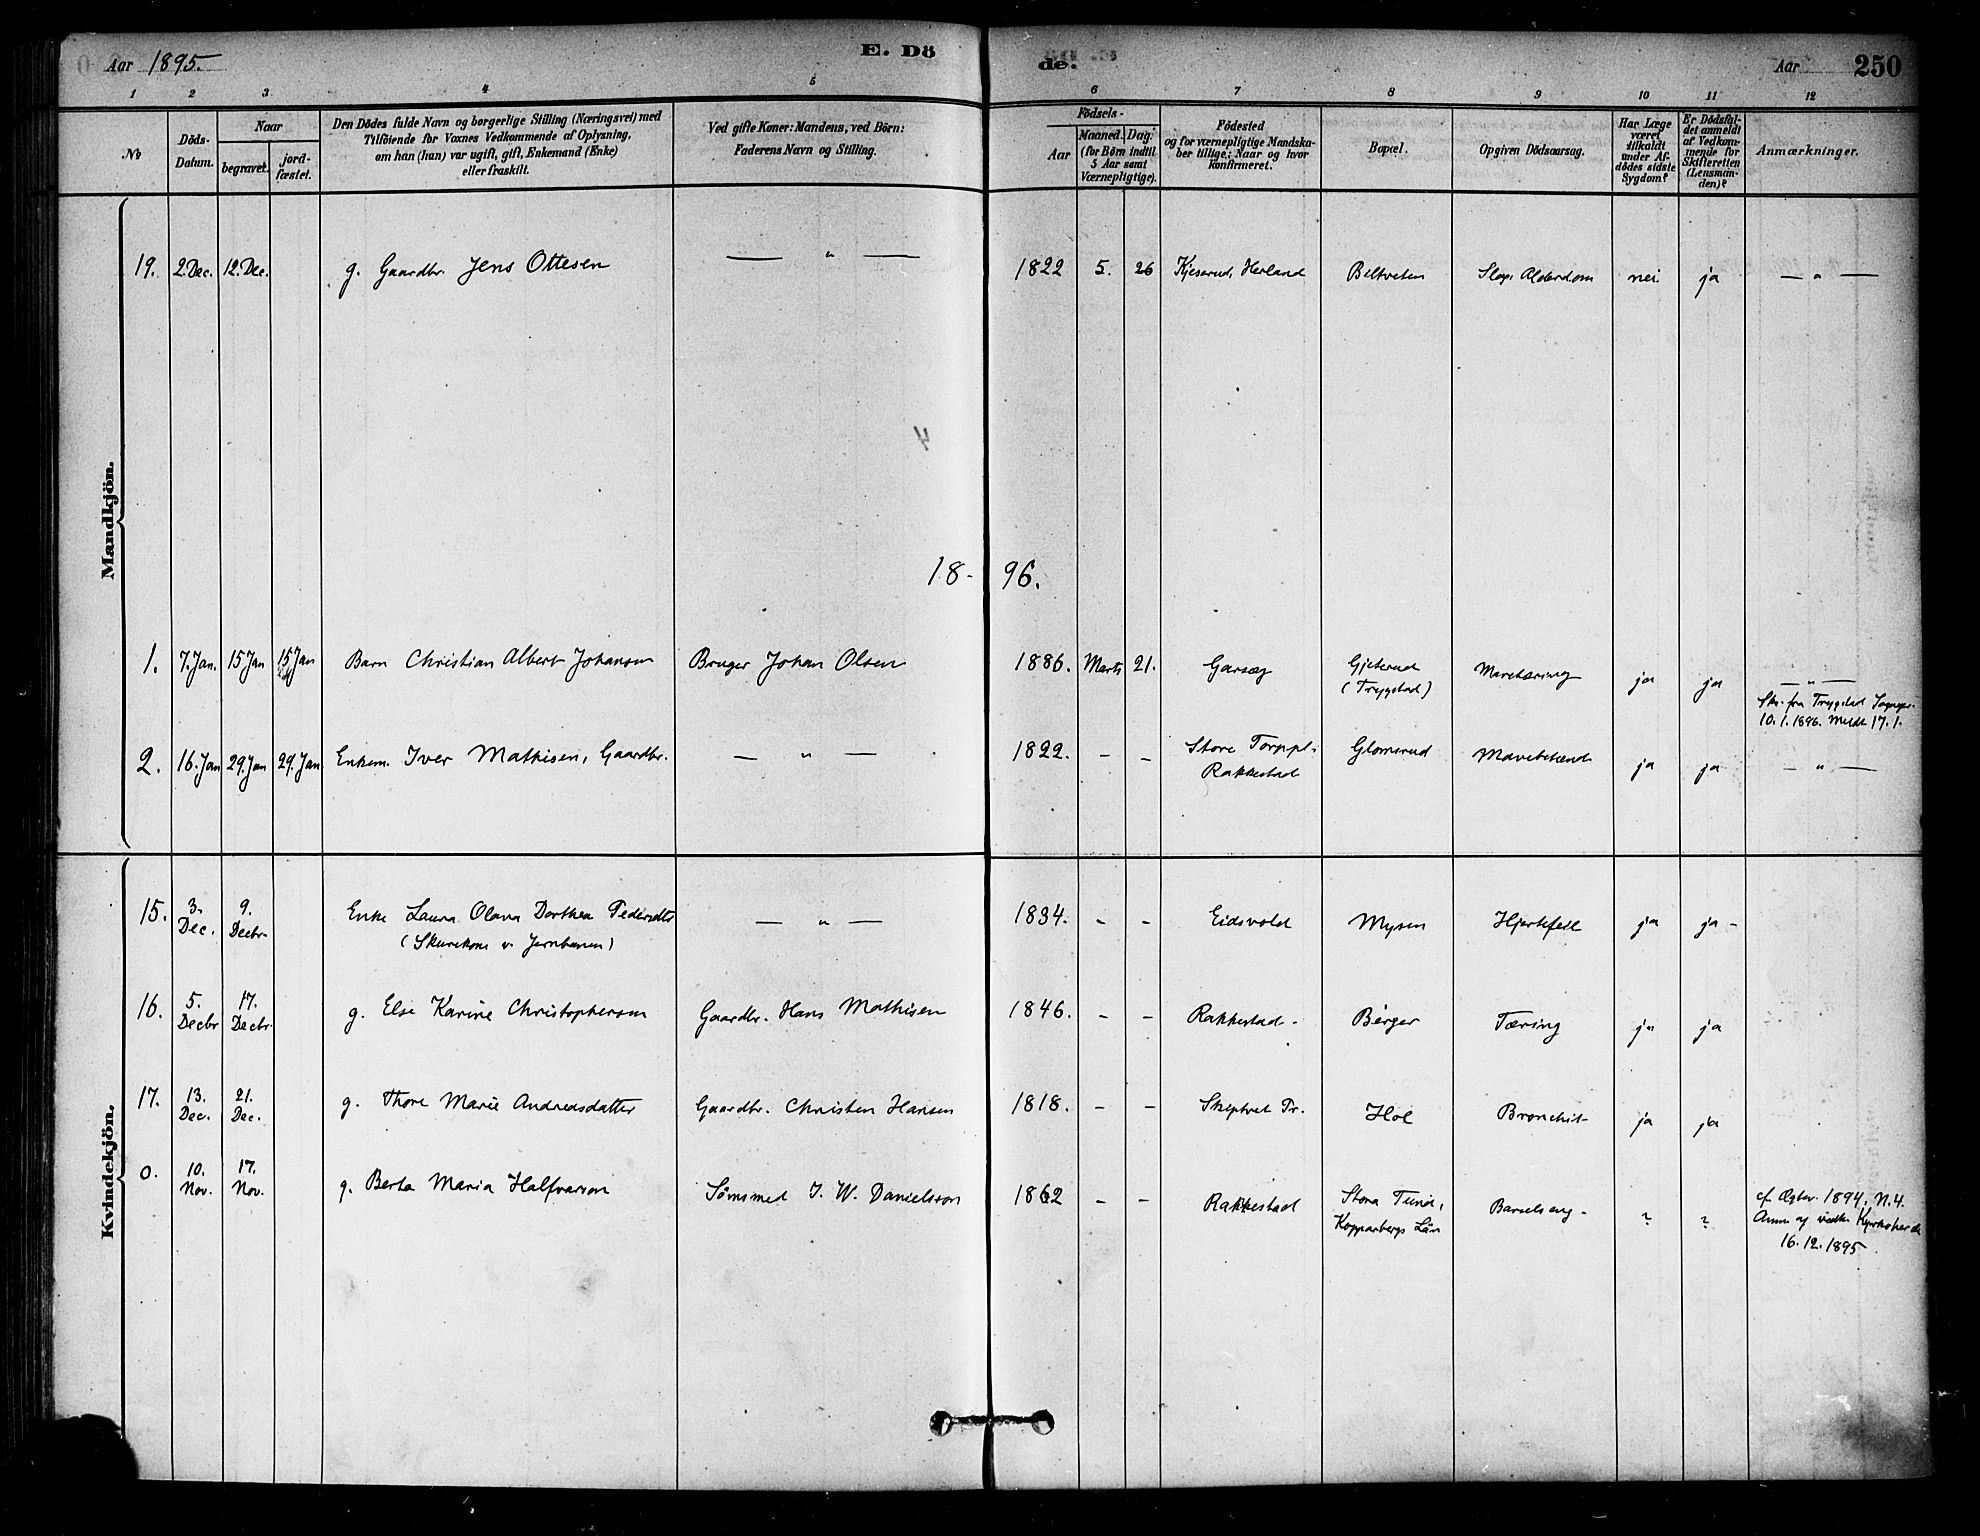 Aar 1895.
E. Dö
de.
Aar
250
1 2 3 4 5 6 7 8 9 10 11 12
№
Döds-
Datum.
Naar
begravet.
jord-
fæstet.
Den Dödes fulde Navn og borgerlige Stilling (Næringsvei) med
Tilföiende for Voxnes Vedkommende af Oplysning,
om han (hun) var ugift, gift, Enkemand (Enke)
eller fraskilt.
Ved gifte Koner: Mandens, ved Börn:
Faderens Navn og Stilling.
Födsels-
Aar
Maaned. Dag.
(for Börn indtil
5 Aar samt
Værnepligtige).
Födested
og for værnepligtige Mandska-
ber tillige: Naar og hvor
konfirmeret.
Bopæl.
Opgiven Dödsaarsag.
Har Læge
været
tilkaldt
under Af-
dödes sidste
Sygdom?
Er Dödsfal-
det anmeldt
af Vedkom-
mende for
Skifteretten
(Lensman-
den)?
Anmærkninger.
Mandkjön.
19. 2. Dec. 12. Dec. g. Gaardbr. Jens Ottesen — " — 1822 5. 26 Kjeserud, Herland Biltveten Slag, Alderdom nei ja — " —
18-96.
1. 7. Jan. 15 Jan 15 Jan Barn Christian Albert Johansen Bruger Johan Olsen 1886. Marts 21. Garseg Gjeterud Mavetæring ja ja — " —
(Trygstad)
Skr. fra Trygstad Sognepr.
10.1.1896. Meldt 17.1.
2. 16. Jan 29. Jan 29. Jan Enkem. Iver Mathisen, Gaardbr. — " — 1822. - - Store Torppl. Glomsrud Mavebetænd ja ja — " —
Rakkestad
Kvindekjön.
15. 3. Dec. 9. Decbr. Enke Laura Olava Dorthea Pedersdtr — " — 1834. - - Eidsvold Mysen Hjertefeil ja ja -
(Skurekone v. Jernbanen)
16. 5. Decbr 17. Decbr. g. Else Karine Christophersen Gaardbr. Hans Mathisen 1846. - - Rakkestad. Berger Tæring ja ja
17. 13. Dec. 21. Dec. g. Thore Marie Andreasdatter Gaardbr. Christen Hansen 1818. - - Skiptvet Pr. Hol Bronchit- ja ja
0. 10. Nov. 17. Nov. g. Berta Maria Halfvarson Sömsmed J. W. Danielsson 1862 - - Rakkestad Stora Tuna, Barselseng. ? ?
Kopparbergs Län
cf. Ægtev. 1894, N. 4.
Anm. af Kyrkoherde
16.12.1895.